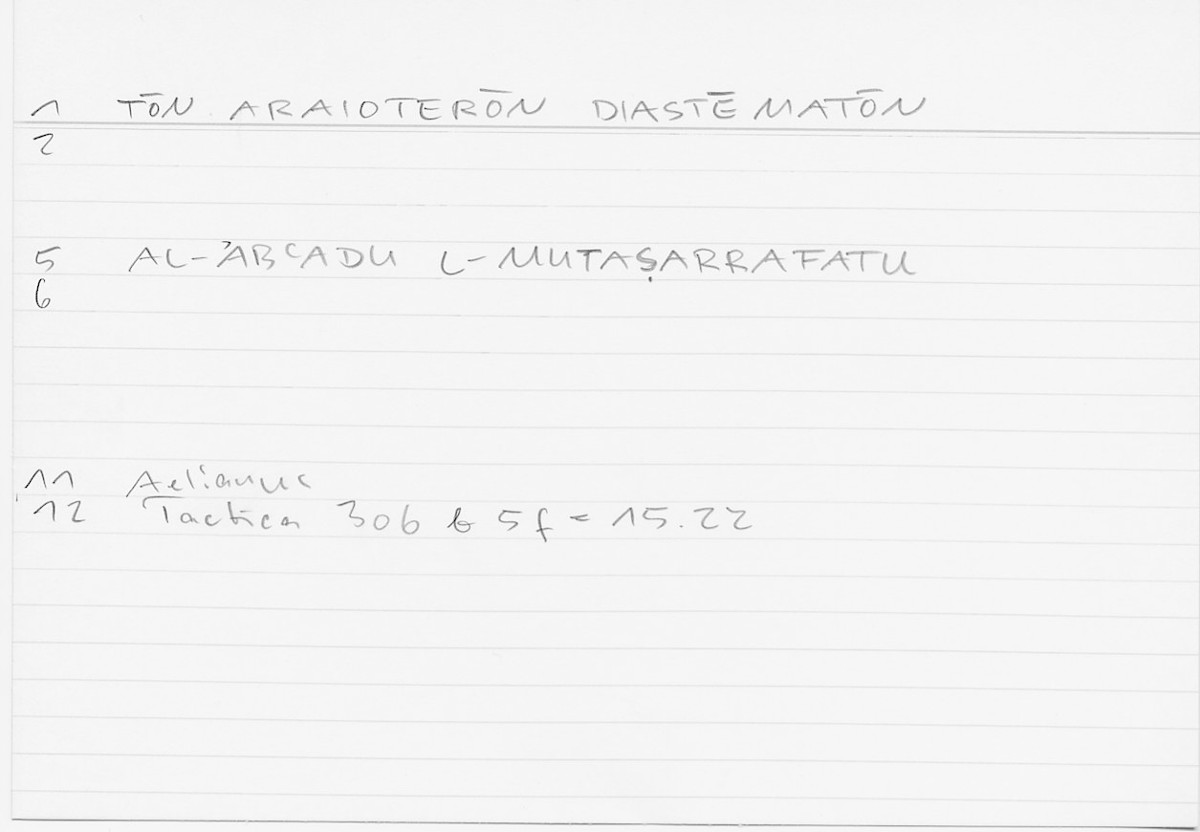 1 TŌN ARAIOTERŌN DIASTĒMATŌN
2
5 AL-ʾABʿADU L-MUTAṢARRAFATU
6
11 Aelianus
12 Tactica 306 b 5f = 15.22